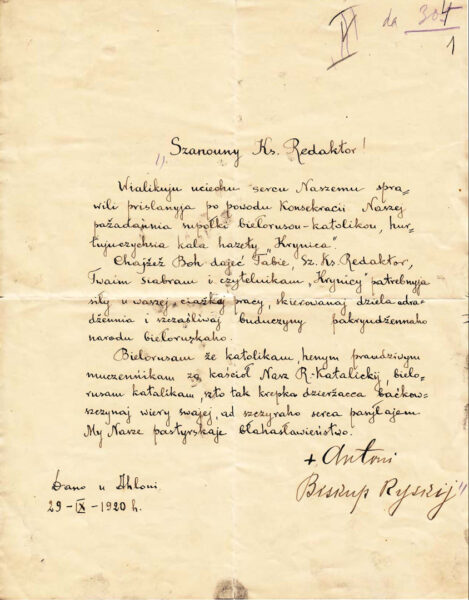 V da 304
1
„Szanouny Ks. Redaktor!
Wialikuju uciechu sercu Naszemu spra=
wili prislanyja po powodu Konsekracii Naszej
pażadańnia supolki biełorusou-katolikou, hur=
tujuczychsia kala hazety „Krynica"
Chajżeż Boh dajeć Tabie, Sz. Ks. Redaktor,
Twaim siabram i czytelnikam „Krynicy" patrebnyja
siły u waszej ciażkoj pracy, skierowanaj dziela adra=
dżennia i szczaśliwaj buduczyny pakrydżennaho
narodu biełoruskaho.
Biełorusam że katolikam, henym praudziwym
muczennikam za kaścioł Nasz R-Katalickij, bieło-
rusam katalikam, szto tak krepka dzierżacca baćkow=
szczynaj wiery swajej, ad szczyraho serca pasyłajem
My Nasze pastyrskaje błahasławieństwo.
+ Antoni
Biskup Ryskij"
Dano u Ahłoni
29-IX-1920 h.